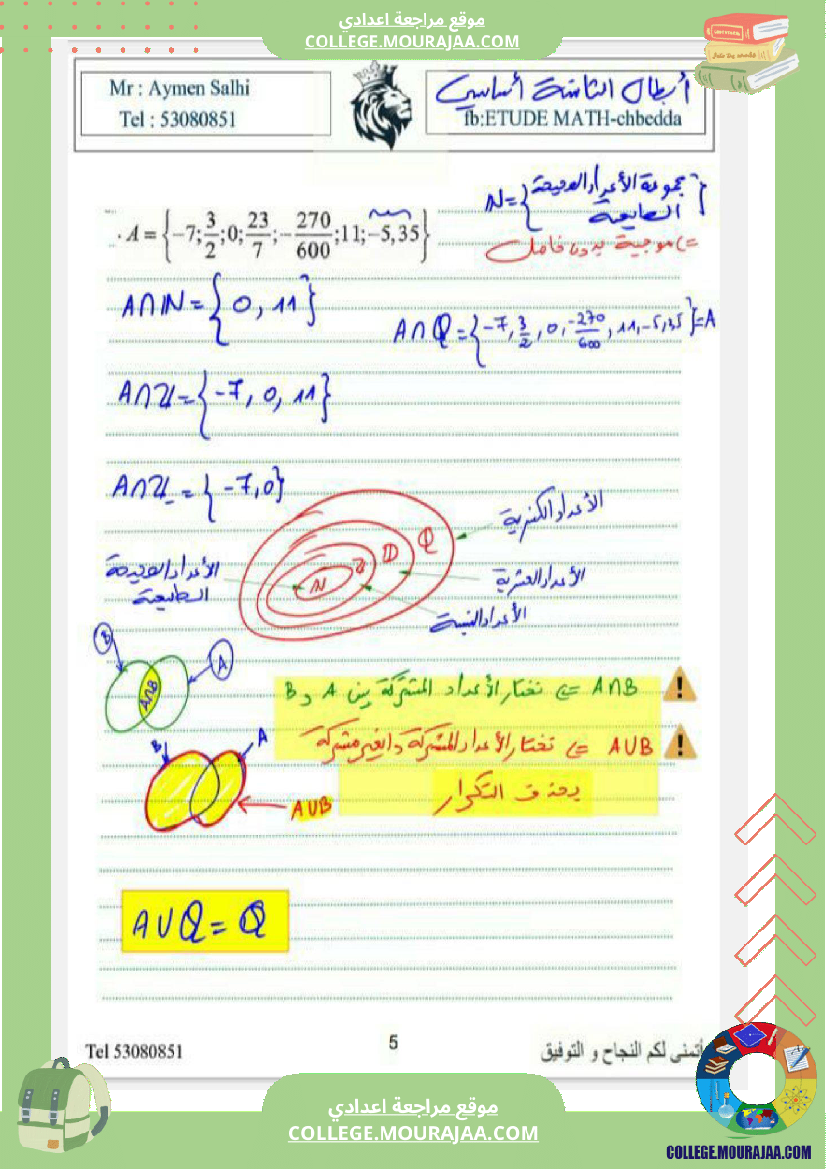 موقع مراجعة اعدادي
COLLEGE.MOURAJAA.COM
Mr : Aymen Salhi
Tel : 53080851
أبطال الثامنة أساسي
fb:ETUDE MATH-chbedda
A = {-7; 3/2; 0; 23/7; -270/600; 11; -5,35}
N = {مجموعة الأعداد الصحيحة الطبيعية}
=> موجبة بدون فاصل
A∩N = {0, 11}
A∩Q = {-7, 3/2, 0, -270/600, 11, -5,35} = A
A∩Z = {-7, 0, 11}
A∩Z_ = {-7, 0}
الأعداد الكسرية
Q
D
Z
N
الأعداد الصحيحة
الطبيعية
الأعداد العشرية
الأعداد النسبية
B
A
A∩B
A∩B => نختار الأعداد المشتركة بين A و B
B
A
A∪B
A∪B => نختار الأعداد المشتركة والغير مشتركة
بحذف التكرار
A∪Q = Q
Tel 53080851
5
أتمنى لكم النجاح و التوفيق
موقع مراجعة اعدادي
COLLEGE.MOURAJAA.COM
COLLEGE.MOURAJAA.COM